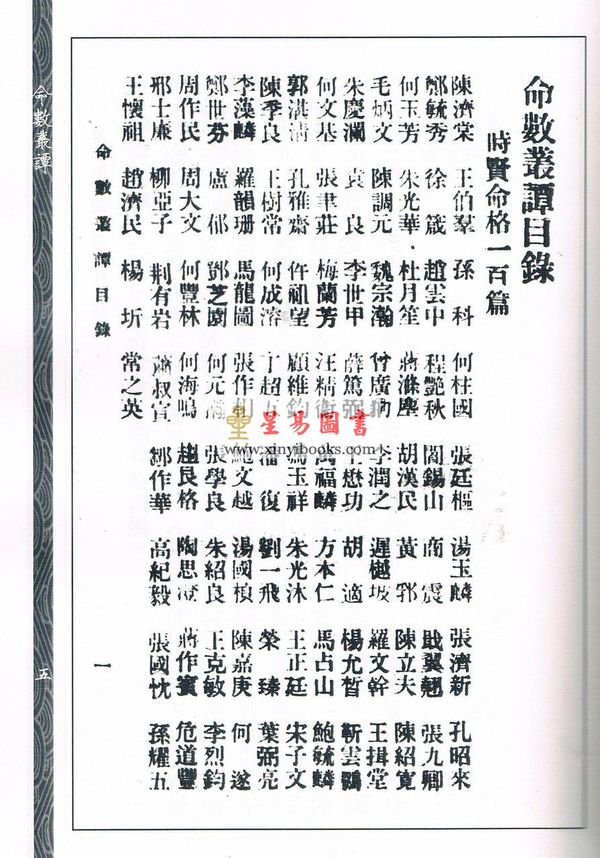 命數叢譚目錄
時賢命格一百篇
陳濟棠 王伯羣 孫科 何柱國 張廷樞 湯玉麟 張濟新 孔昭來
鄭毓秀 徐箴 趙雲中 程艷秋 閻錫山 商震 戢翼翹 張九卿
何玉芳 朱光華 杜月笙 蔣滌塵 胡漢民 黃郛 陳立夫 陳紹寬
毛炳文 陳調元 魏宗瀚 曾廣 李潤之 遲樾坡 羅文幹 王揖堂
朱慶瀾 袁良 李世甲 薛篤弼 懋功 胡適 楊允晳 靳雲鵬
何文基 張聿莊 梅蘭芳 汪精衛 萬福麟 方本仁 馬占山 鮑毓麟
郭淇清 孔雅齋 仵祖望 顧維鈞 馮玉祥 朱光沐 王正廷 宋子文
陳季良 王樹常 何成溶 丁超 潘復 劉一飛 榮臻 葉弼亮
李藻麟 羅韻珊 馬龍圖 張作相 鮑文越 湯國楨 陳嘉庚 何遂
鄭世芬 盧郁 鄧芝園 何元 張學良 朱紹良 王克敏 李烈鈞
周作民 周大文 何豐林 何海鳴 趙艮格 陶思澄 蔣作賓 危道豐
邢士廉 柳亞子 荆有岩 蕭叔宣 鄒作華 高紀毅 張國忱 孫耀五
王懷祖 趙濟民 楊圻 常之英
命數叢譚目錄 一
命數叢譚 五
星易圖書
www.xinyibooks.com